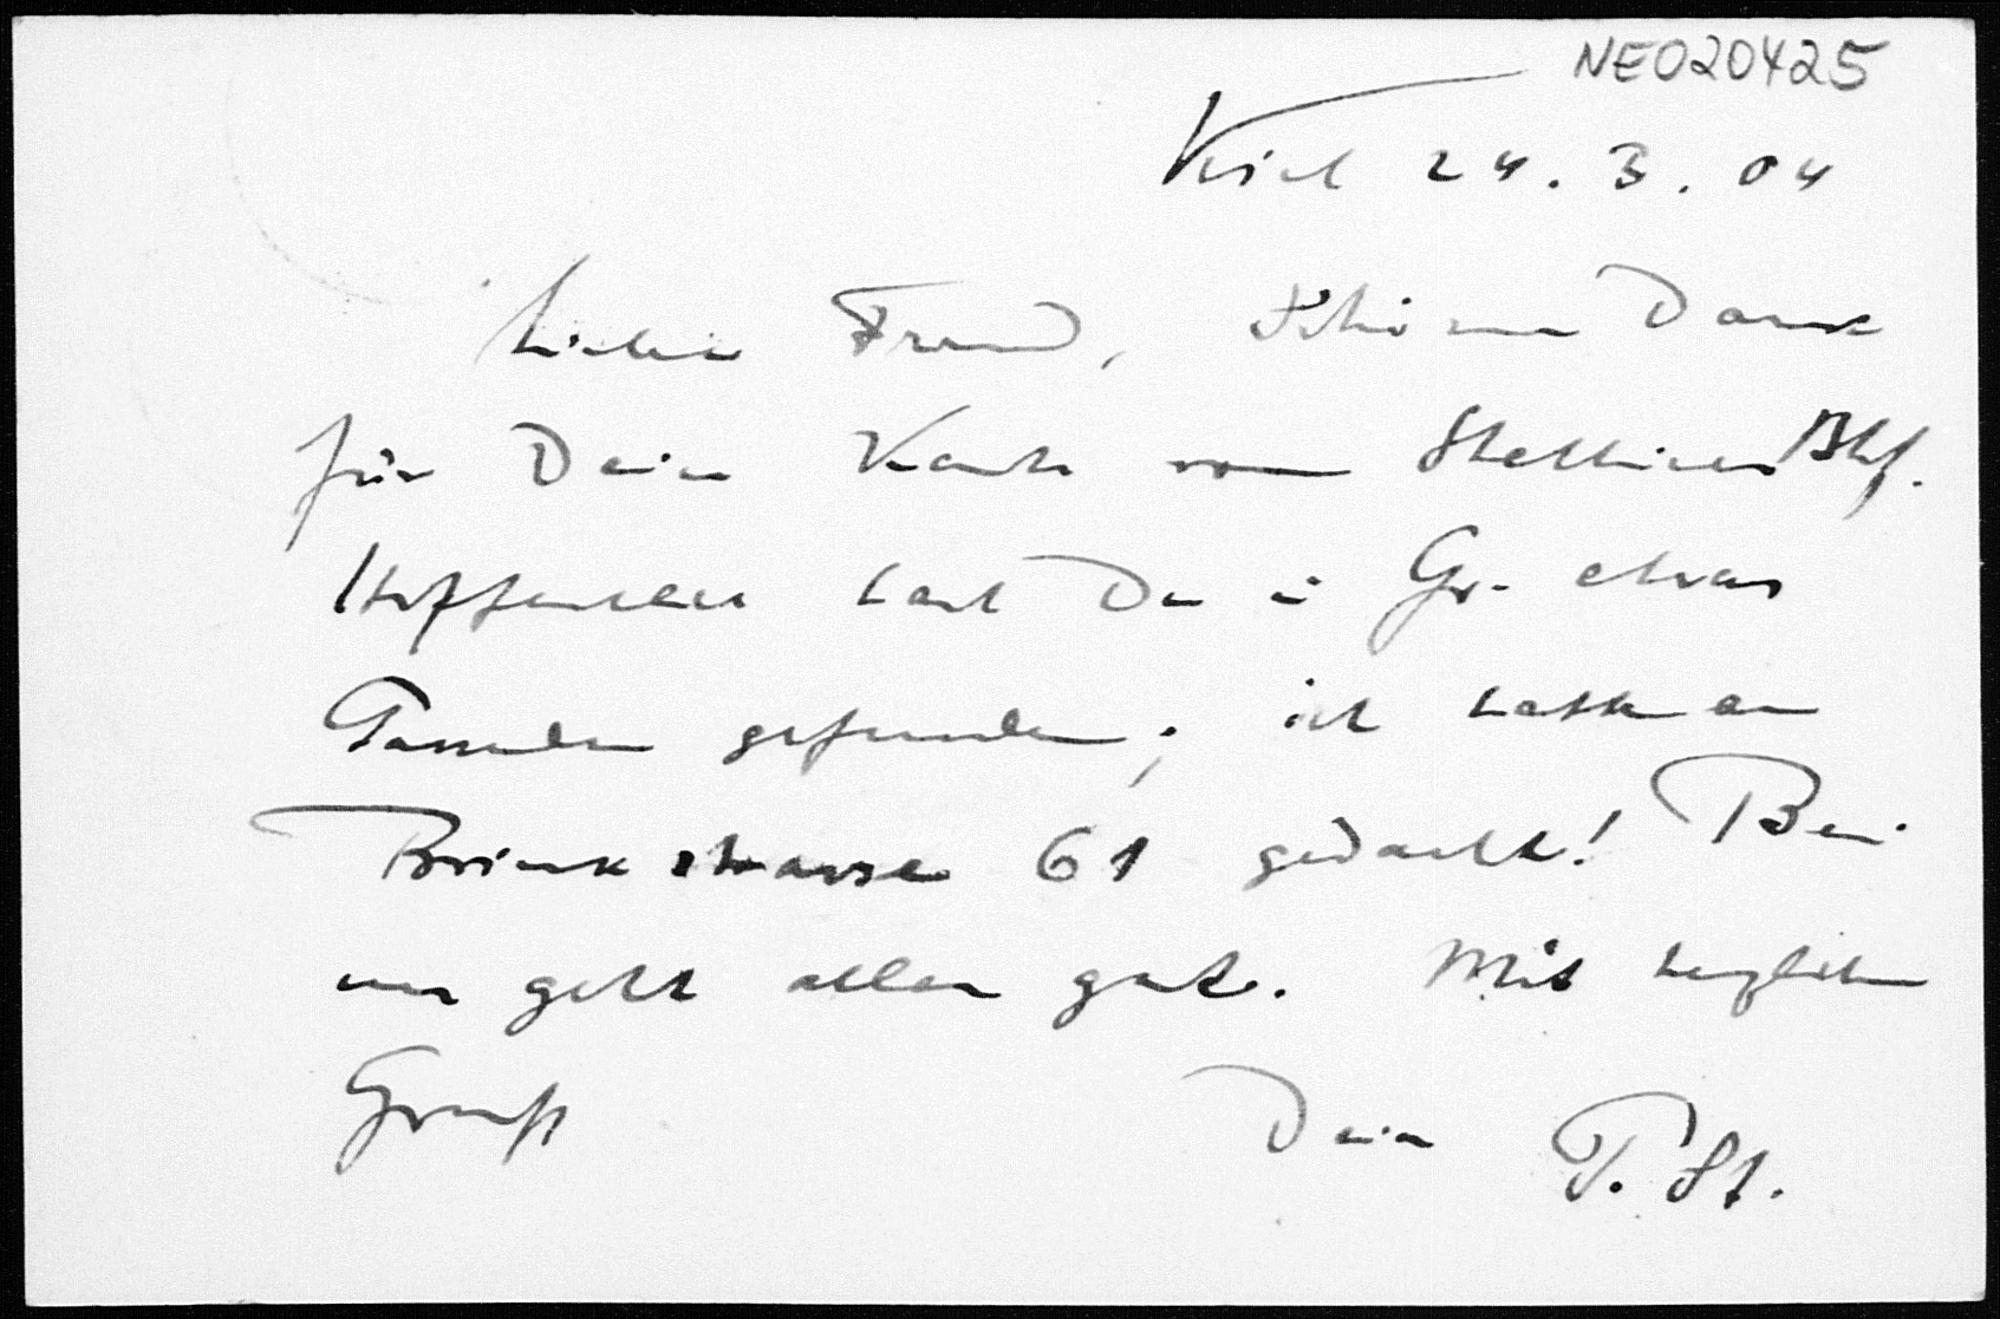 NE020425
Kiel 24. 3. 04
Lieber Freund, Schönen Dank
für Deine Karte vom Stettiner Bhf.
Hoffentlich hast Du i Gr. etwas
Passendes gefunden; ich hatte an
Brinkstrasse 61 gedacht! Bei
uns geht alles gut. Mit herzlichem
Gruß Dein P. St.